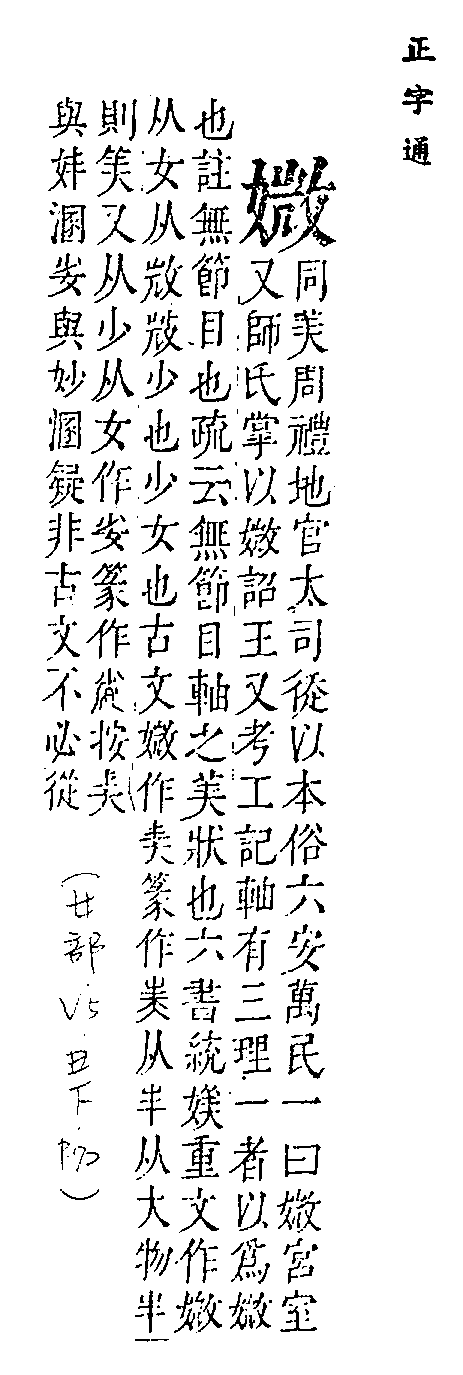 正字通
媺
同美周禮地官太司徒以本俗六安萬民一曰媺宮室
又師氏掌以媺詔王又考工記軸有三理一者以爲媺
也註無節目也疏云無節目軸之美狀也六書統媄重文作媺
从女从𢼸𢼸少也少女也古文媺作篆作从半从大物半
則又从少从女作妛篆作按
與溷妛與妙溷疑非古文不必從
(女部 V5.丑下.P70)